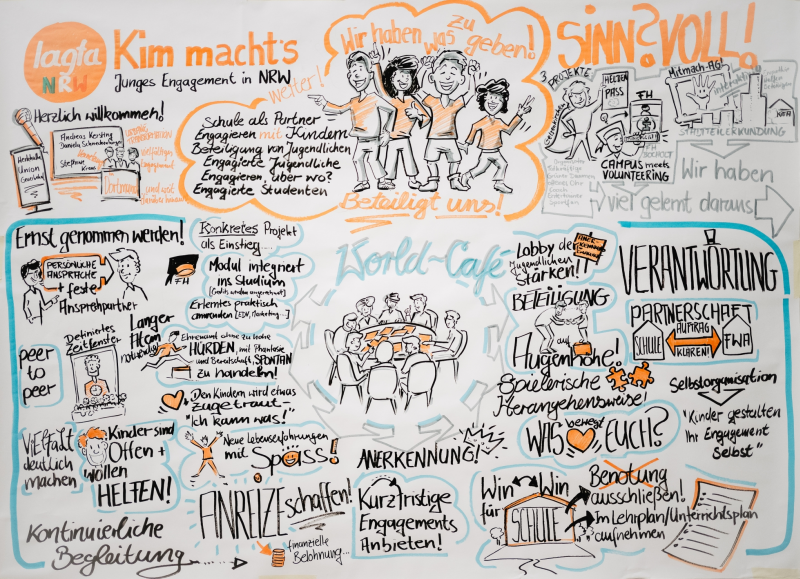 lagfa
NRW
Kim macht's
Junges Engagement in NRW
weiter!
Herzlich willkommen!
Andreas Kersting
Daniela Schneckenburger
Stephanie
Krause
Union
Dortmund
Wir haben
was
zu
geben!
Schule als Partner
Engagieren mit Kindern
Beteiligung von Jugendlichen
Engagierte Jugendliche
Engagieren, über wo?
Engagierte Studenten
Beteiligt uns!
SINN?VOLL!
3 PROJEKTE
HELDEN
PASS
FH
Mitmach-AG!
STADTTEILERKUNDUNG
CAMPUS meets
VOLUNTEERING
Wir haben
viel gelernt daraus
Ernst genommen werden!
PERSÖNLICHE
ANSPRACHE
+ feste
Ansprechpartner
Konkretes Projekt
als Einstieg...
FH
Modul integriert
ins Studium
Erlerntes praktisch
anwenden (EDV, Marketing...)
peer
to
peer
Definiertes
Zeitfenster
Langer
Atem
notwendig
Ehrenamt ohne zu hohe
HÜRDEN, mit Phantasie
und Bereitschaft, SPONTAN
zu handeln!
Den Kindern wird etwas
zugetraut-
"Ich kann was!"
Vielfalt
deutlich
machen
Kinder sind
Offen +
wollen
HELFEN!
Neue Lebenserfahrungen
mit Spass!
Kontinuierliche
Begleitung
ANREIZE schaffen!
finanzielle
Belohnung...
World-Café
ANERKENNUNG!
Kurzfristige
Engagements
Anbieten!
Lobby der
Jugendlichen
Stärken!!
BETEILIGUNG
auf
Augenhöhe!
Spielerische
Herangehensweise!
WAS bewegt EUCH?
VERANTWORTUNG
PARTNERSCHAFT
SCHULE
AUFTRAG
KLÄREN!
FWA
Selbstorganisation
"Kinder gestalten
Ihr Engagement
Selbst"
Win Win
für
SCHULE
Benotung
ausschließen!
Im Lehrplan/Unterrichtsplan
aufnehmen